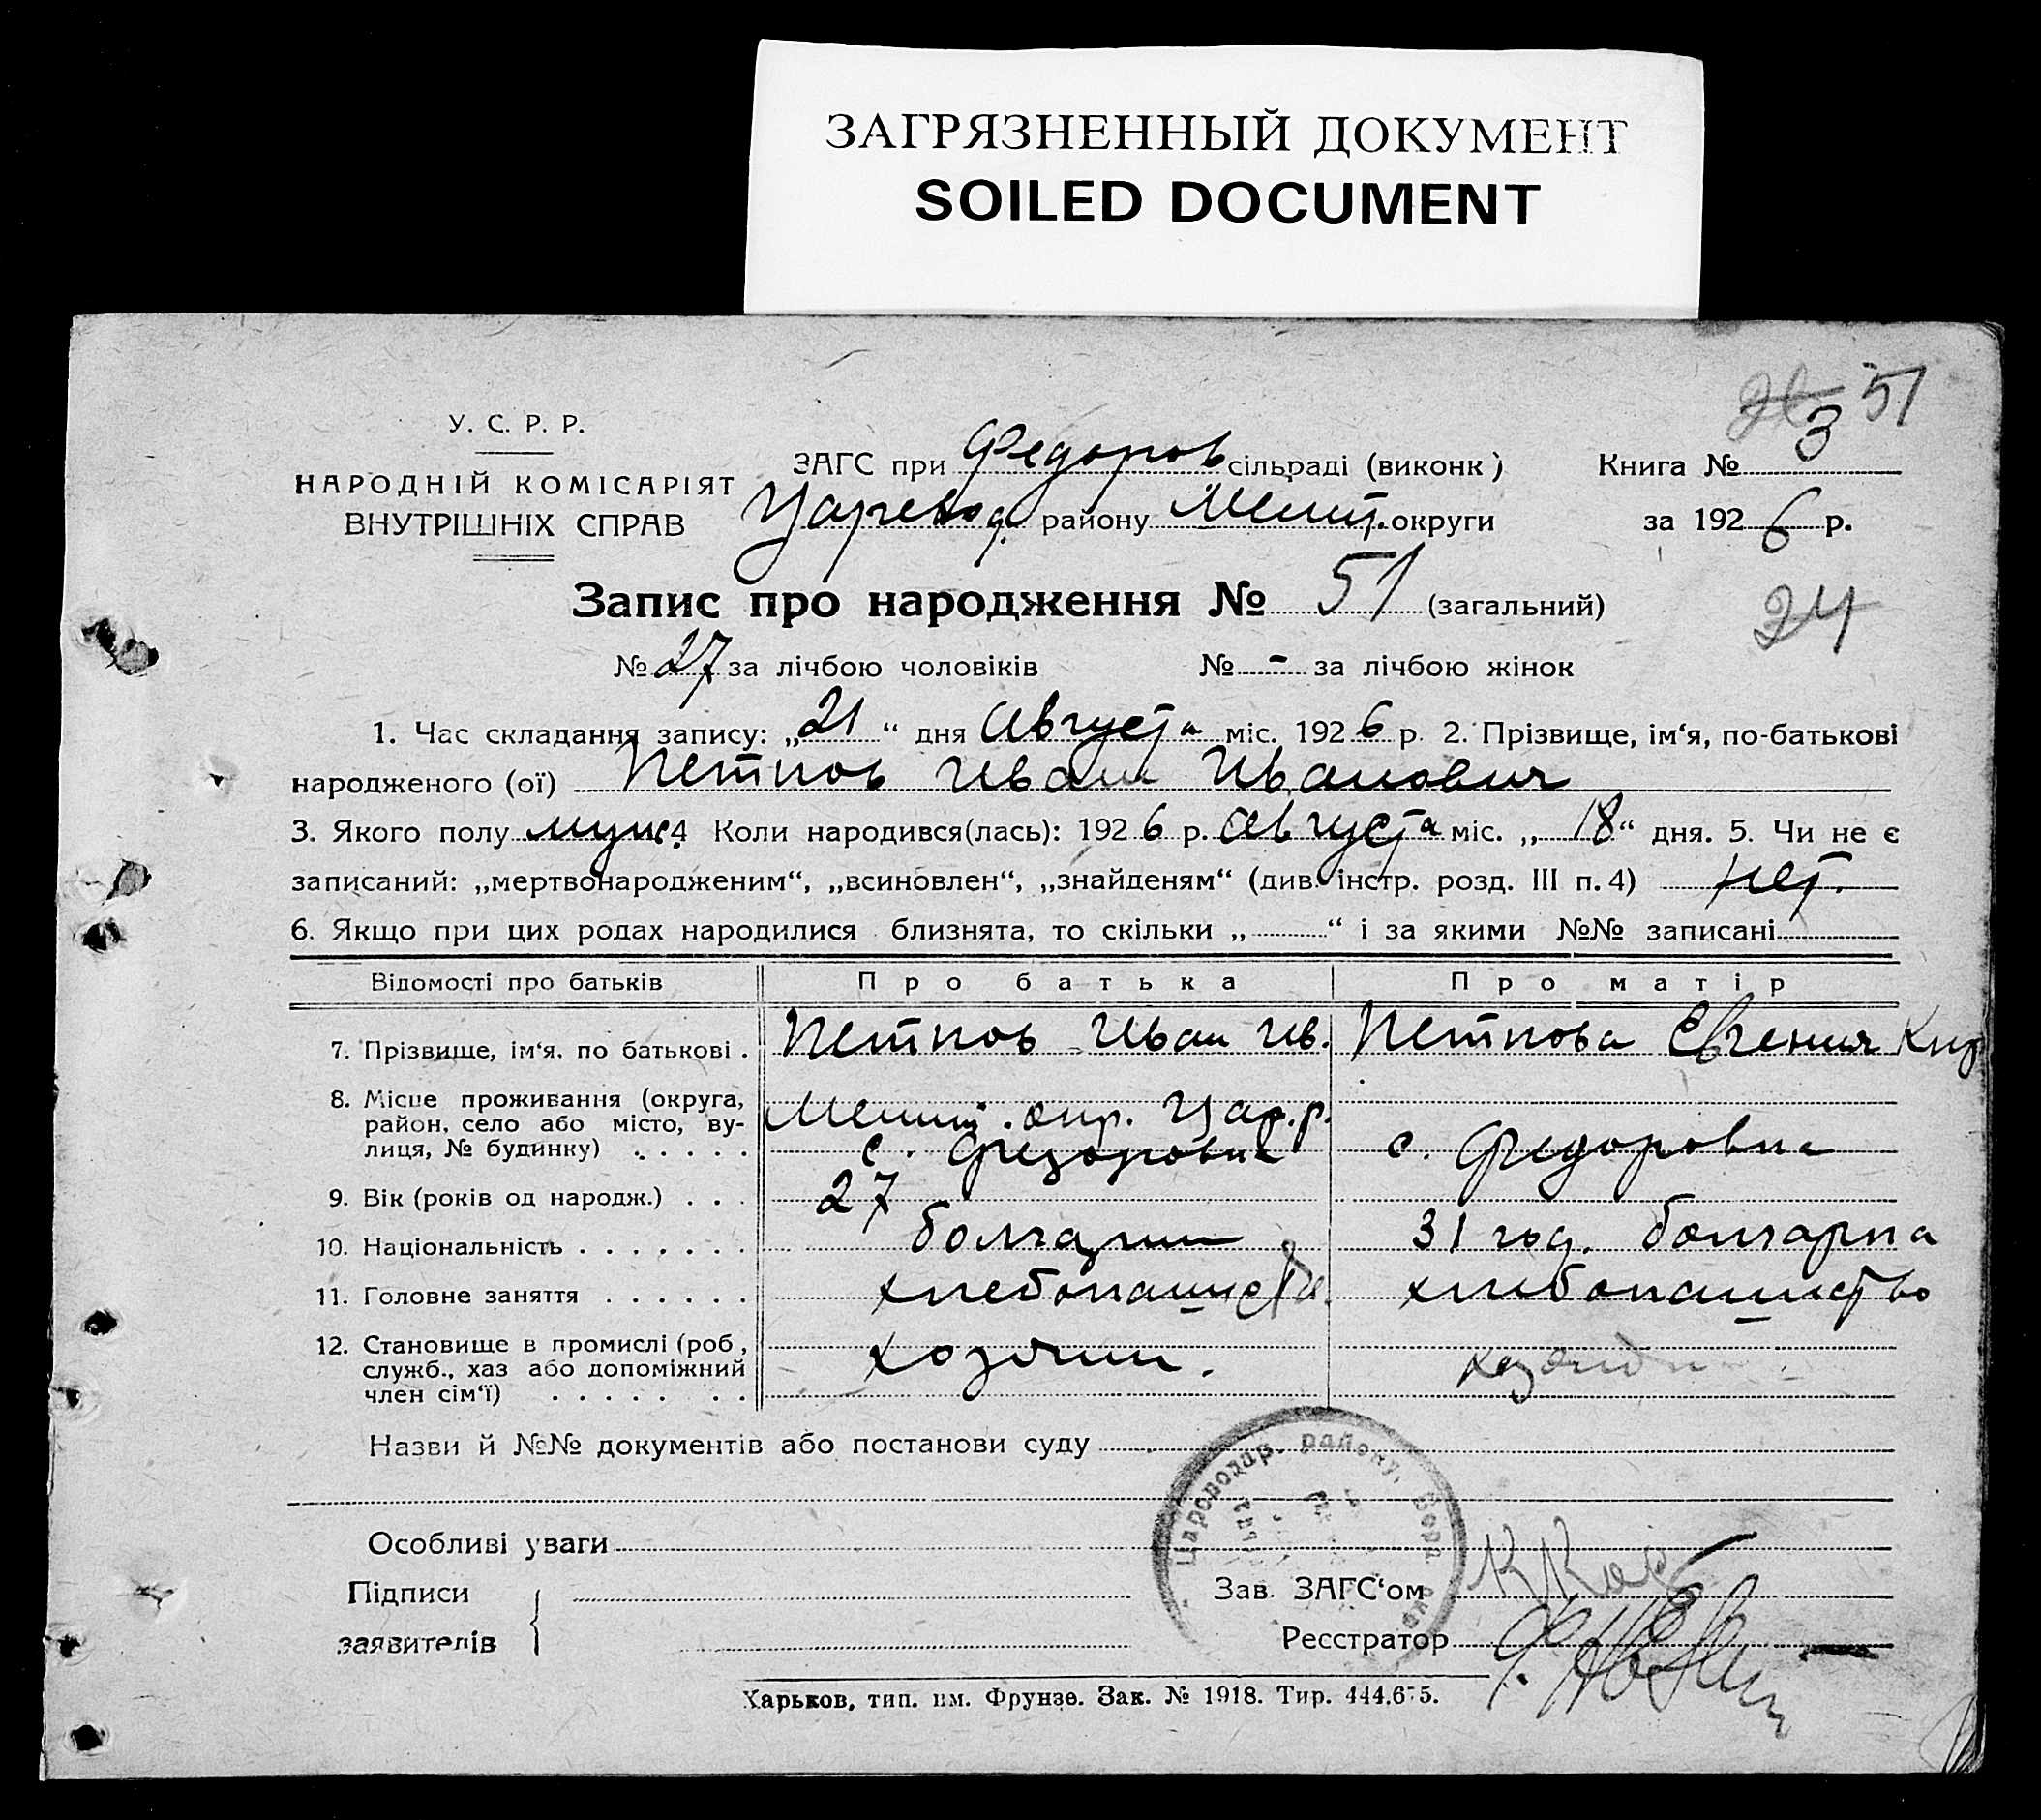 ЗАГРЯЗНЕННЫЙ ДОКУМЕНТ
SOILED DOCUMENT
51
У. С. Р. Р.
НАРОДНІЙ КОМІСАРІЯТ
ВНУТРІШНІХ СПРАВ
ЗАГС при Федоров сільраді (виконк)
Царевод. району Мелит. округи
Книга № 3
за 1926 р.
Запис про народження № 51 (загальний)
24
№ 27 за лічбою чоловіків № - за лічбою жінок
1. Час складання запису: „21“ дня Августа міс. 1926 р. 2. Прізвище, ім‘я, по-батькові
народженого (ої) Петков Иван Иванович
3. Якого полу муж. 4 Коли народився(лась): 1926 р. Августа міс. „18“ дня. 5. Чи не є
записаний: „мертвонародженим“, „всиновлен“, „знайденям“ (див. інстр. розд. III п. 4) нет.
6. Якщо при цих родах народилися близнята, то скільки „ “ і за якими №№ записані
Відомості про батьків Про батька Про матір
7. Прізвище, ім‘я, по батькові . Петков Иван Ив. Петкова Евгения Кир
8. Місце проживання (округа,
район, село або місто, ву-
лиця, № будинку) . . . . .
Мелит. окр. Цар. р.
с. Федоровка с. Федоровка
9. Вік (років од народж.) . . . 27
10. Національність . . . . . . . болгарин 31 год. болгарка
11. Головне заняття . . . . . . хлебопашество хлебопашество
12. Становище в промислі (роб,
служб., хаз або допоміжний
член сім‘ї) . . . . . . .
хозяин.
Назви й №№ документів або постанови суду
Цароводар. району,
Особливі уваги
Підписи
заявителів
Зав. ЗАГС‘ом
Реєстратор
Харьков, тип. им. Фрунзе. Зак. № 1918. Тир. 444.675.